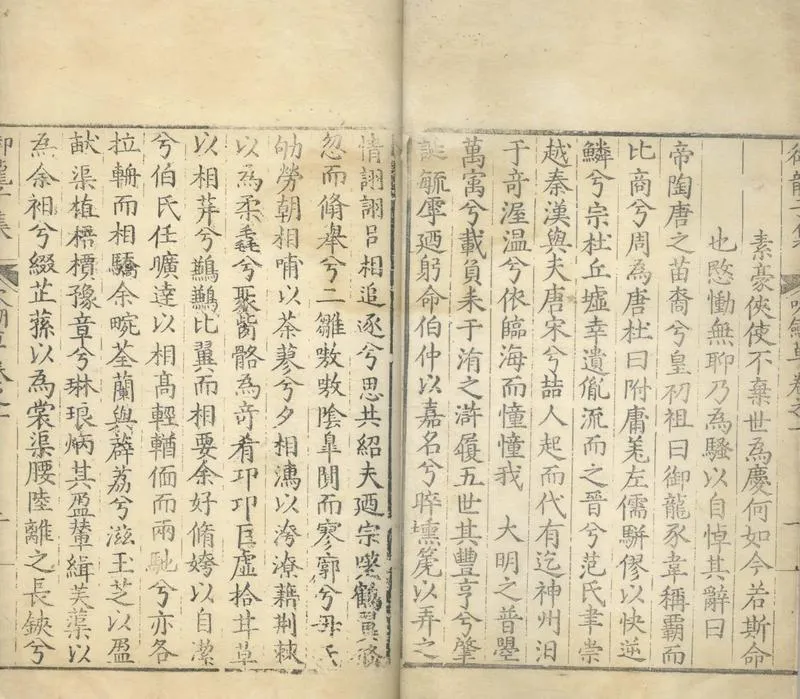 素豪俠使不棄世為慶何如今若斯命
也愍慟無聊乃為騷以自悼其辭曰
帝陶唐之苗裔兮皇初祖曰御龍豕韋稱霸而
比商兮周為唐杜曰附庸羗左儒駢僇以快逆
鱗兮宗杜丘墟幸遺胤流而之晉兮范氏聿崇
越秦漢與夫唐宋兮喆人起而代有迄神州汨
于竒渥温兮依臨海而憧憧我　大明之普曌
萬㝢兮載負耒于洧之滸履五世其豐亨兮肇
誕毓厚廼躬命伯仲以嘉名兮睟壎箎以弄之
情詡詡吕相追逐兮思共紹夫廼宗鶴翼
忽而脩舉兮二雛嗷嗷陰臯閴而寥廓兮毋氏
劬勞朝相哺以荼蓼兮夕相以滂潦藉荆棘
以為柔毳兮聚骼為竒肴卭卭巨虛拾茸草
以相茻兮鶼鶼比翼而相要余好脩姱以自潔
兮伯氏任曠達以相髙輕輶偭而兩馳兮亦各
拉軵而相驕余畹荃蘭與薜荔兮滋玉芝以盈
畝渠植梧檟豫章兮琳琅炳其盈輦緝芙蕖以
為余裯兮綴芷蓀以為裳渠腰陸離之長鋏兮